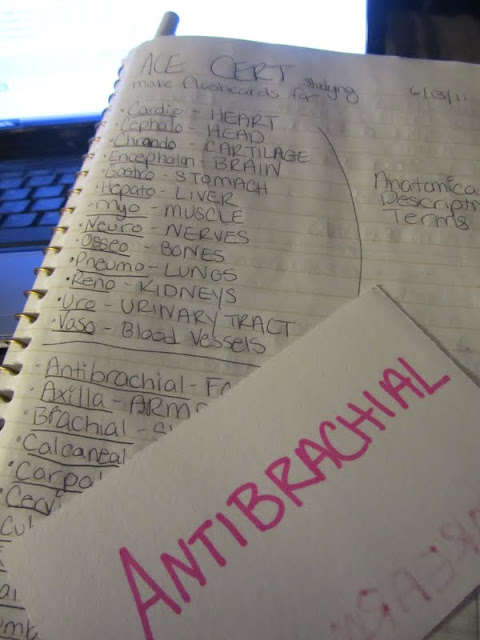 ACE CERT studying
make flashcards for
6/13/11
• Cardio - HEART
• Cephalo - HEAD
• Chrondo - CARTILAGE
• Encephalon - BRAIN
• Gastro - STOMACH
• Hepato - LIVER
• Myo - MUSCLE
• Neuro - NERVES
• Osseo - BONES
• Pneumo - LUNGS
• Reno - KIDNEYS
• Uro - URINARY TRACT
• Vaso - Blood Vessels
Anatomica
Descripti
Terms
• Antibrachial - Fo
• Axilla - ARMP
• Brachial -
• Calcaneal
• Carpal
• Cervi
Cu
ANTIBRACHIAL
FOREARM